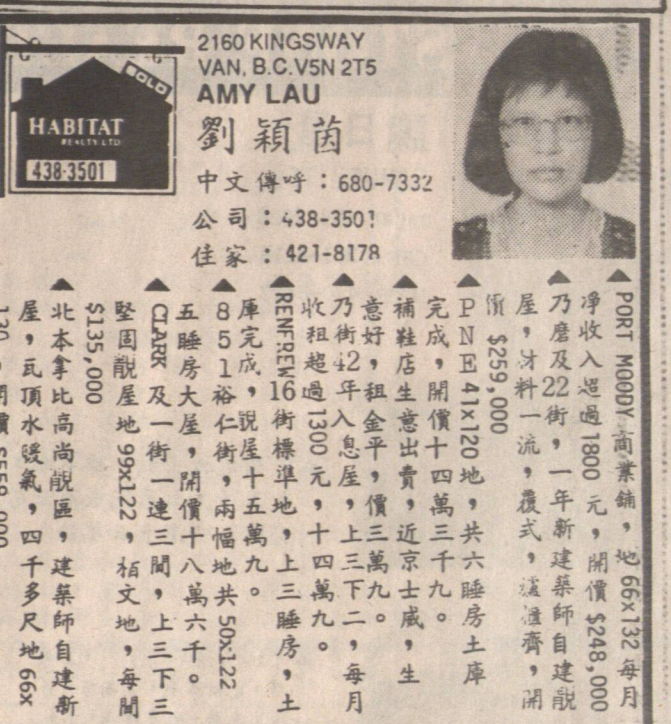 SOLD
HABITAT
REALTY LTD
438-3501
2160 KINGSWAY
VAN, B.C. V5N 2T5
AMY LAU
劉穎茵
中文傳呼：680-7332
公司：438-3501
住家：421-8178
▲PORT MOODY 商業鋪，地 66x132 每月
净收入超過1800 元，開價 $248,000
▲乃磨及22街，一年新建築師自建靚
屋，材料一流，覆式，齊，開
價 $259,000
▲PNE 41x120 地，共六睡房土庫
完成，開價十四萬三千九。
▲補鞋店生意出賣，近京士威，生
意好，租金平，價三萬九。
▲乃街42年入息屋，上三下二，每月
收租超過1300元，十四萬九。
▲RENFREW16街標準地，上三睡房，土
庫完成，靚屋十五萬九。
▲851裕仁街，兩幅地共 50x122
五睡房大屋，開價十八萬六千。
▲CLARK 及一街一連三間，上三下三
堅固靚屋地99x122，栢文地，每間
$135,000
▲北本拿比高尚靚區，建築師自建新
屋，瓦頂水暖氣，四千多尺地 66x